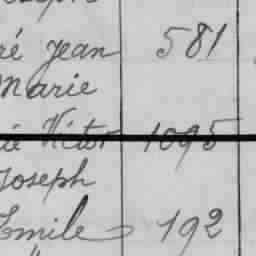 ré Jean 581
Marie
ié Victor 1095
Joseph
Emile 192